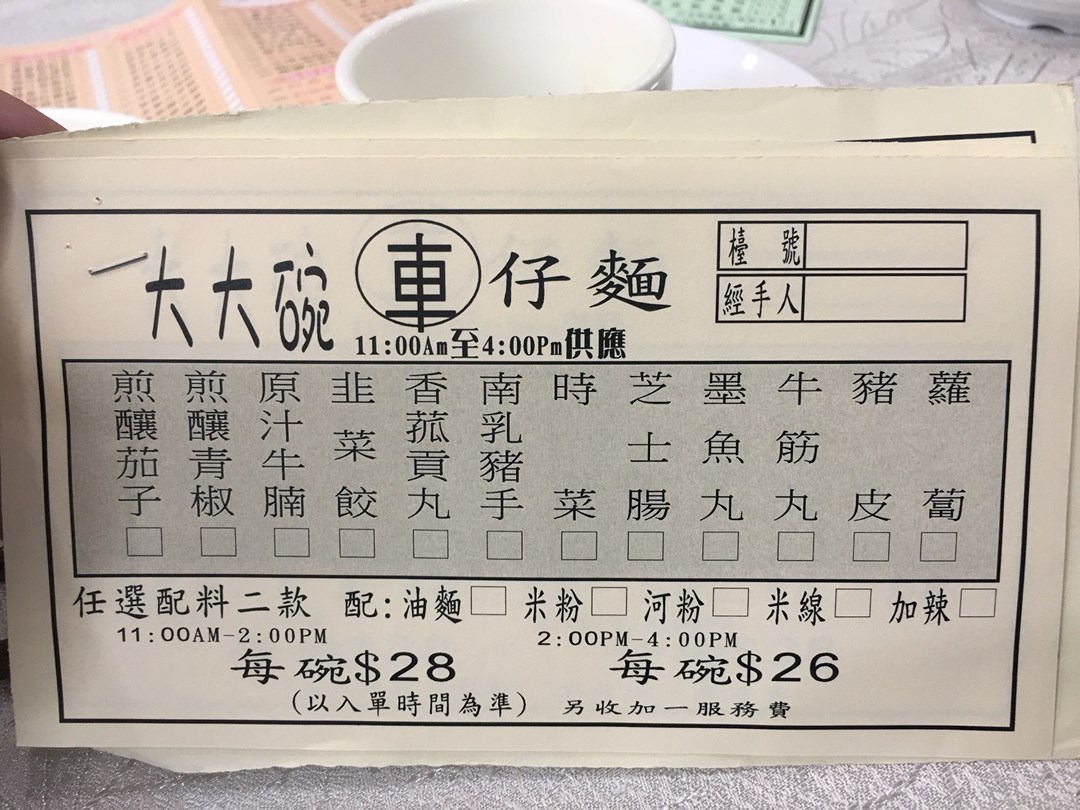 一大大碗車仔麵
檯號
經手人
11:00Am至4:00Pm供應
煎釀茄子
煎釀青椒
原汁牛腩
韭菜餃
香菰貢丸
南乳豬手
時菜
芝士腸
墨魚丸
牛筋丸
豬皮
蘿蔔
任選配料二款 配:油麵 米粉 河粉 米線 加辣
11:00AM-2:00PM 2:00PM-4:00PM
每碗$28 每碗$26
(以入單時間為準) 另收加一服務費